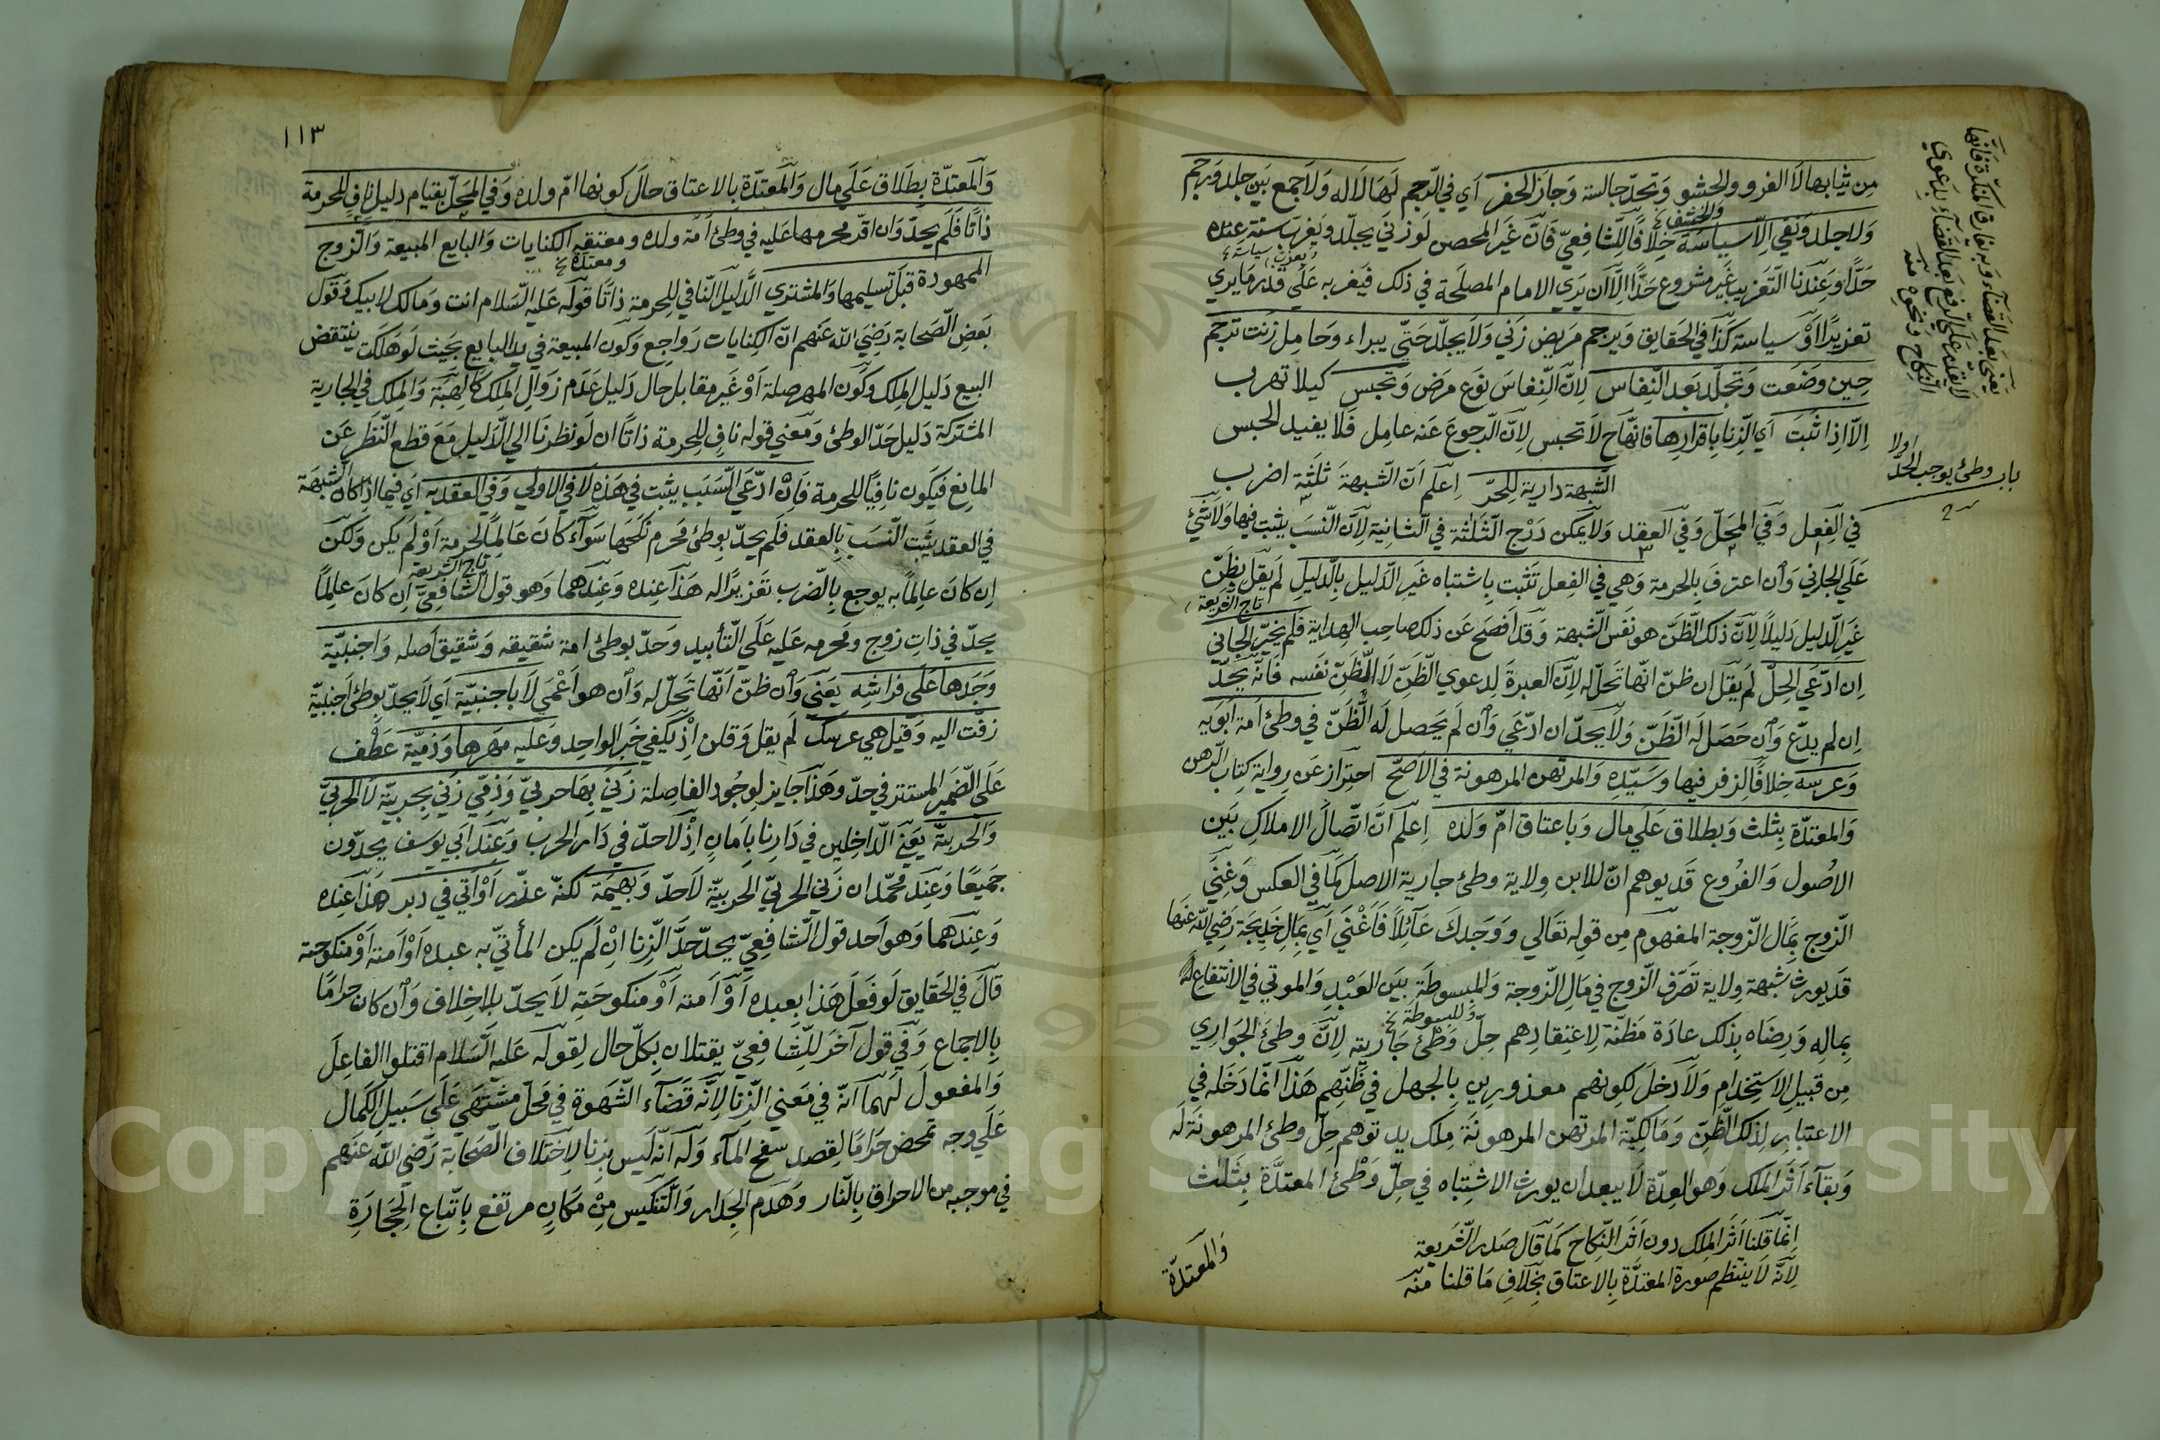 من ثيابها لا الفرو والحشو وتحد جالسة وجاز الحفر اي في الرجم لها لا له ولا جمع بين جلد ورجم
ولا جلد ونفي الا سياسة خلافا للشافعي فان غير المحصن لو زني يجلد ويغرب سنة عنده
حدا وعندنا التغريب غير مشروع حدا الا ان يري الامام المصلحة في ذلك فيغر به علي قدر ما يري
تعزيرا او سياسة كذا في الحقايق ويرجم مريض زني ولا يجلد حتي يبراء وحامل زنت ترجم
حين وضعت وتجلد بعد النفاس لان النفاس نوع مرض وتحبس كيلا تهرب
الا اذا ثبت اي الزنا باقرارها فانها ح لا تحبس لان الرجوع عنه عامل فلا يفيد الحبس
باب وطئ يوجب الحد اولا
الشبهة دارية للحد اعلم ان الشبهة ثلثة اضرب
في الفعل وفي المحل وفي العقد ولا يمكن درج الثلثة في الثانية لان النسب يثبت فيها ولا شئ
علي الجاني وان اعترف بالحرمة وهي في الفعل تثبت باشتباه غير الدليل بالدليل لم يقل بظن
تاج الشريعة
غير الدليل دليلا لان ذلك الظن هو نفس الشبهة وقد افصح عن ذلك صاحب الهداية فلم يحد الجاني
ان ادعي الحل لم يقل ان ظن انها تحل له لان العبرة لدعوي الظن لا للظن نفسه فانه يحد
ان لم يدع وان حصل له الظن ولا يحد ان ادعي وان لم يحصل له الظن في وطئ امة ابويه
وعرسه خلافا لزفر فيها وسيده والمرتهن المرهونة في الاصح احتراز عن رواية كتاب الرهن
والمعتدة بثلث وبطلاق علي مال وباعتاق ام ولده اعلم ان اتصال الاملاك بين
الاصول والفروع قد يوهم ان للابن ولاية وطئ جارية الاصل كما في العكس وغني
الزوج بمال الزوجة المفهوم من قوله تعالي ووجدك عائلا فاغني اي بمال خديجة رضي الله عنها
قد يورث شبهة ولاية تصرف الزوج في مال الزوجة والمبسوطة بين العبد والمولي في الانتفاع
بماله ورضاه بذلك عادة مظنة لاعتقادهم حل وطئ جاريته لان وطئ الجواري
من قبيل الاستخدام ولا دخل لكونهم معذورين بالجهل في ظنهم هذا انما دخله في
الاعتبار لذلك الظن ومالكية المرتهن المرهونة ملك يد توهم حل وطئ المرهونة له
وبقاء اثر الملك وهو العدة لا يبعد ان يورث الاشتباه في حل وطئ المعتدة بثلث
انما قلنا اثر الملك دون اثر النكاح كما قال صدر الشريعة
لانه لا ينتظم صورة المعتدة بالاعتاق بخلاف ما قلنا منه
والمعتدة
١١٣
والمعتدة بطلاق علي مال والمعتدة بالاعتاق حال كونها ام ولده وفي المحل بقيام دليل ناف للحرمة
ذاتا فلم يحد وان اقر بحرمتها عليه في وطئ امة ولده ومعتقه الكنايات والبايع المبيعة والزوج
ومعتدة
الممهورة قبل تسليمها والمشتري الدليل النافي للحرمة ذاتا قوله عليه السلام انت ومالك لابيك وقول
بعض الصحابة رضي الله عنهم ان الكنايات رواجع وكون المبيعة في يد البايع بحيث لو هلكت ينتقض
البيع دليل الملك وكون المهر صلة او غير مقابل حال دليل عدم زوال الملك كالهبة والملك في الجارية
المشتركة دليل حد الوطئ ومعني قوله ناف للحرمة ذاتا ان لو نظرنا الي الدليل مع قطع النظر عن
المانع فيكون نافيا للحرمة فان ادعي النسب يثبت في هذه لا في الاولي وفي العقد به اي فيما اذا كان الشبهة
في العقد يثبت النسب بالعقد فلم يحد بوطئ محرم نكحها سوآء كان عالما بالحرمة او لم يكن ولكن
تاج الشريعة
ان كان عالما به يوجع بالضرب تعزيرا له هذا عنده وعندهما وهو قول الشافعي ان كان عالما
يحد في ذات زوج ومحرمه عليه علي التأبيد وحد بوطئ امة شقيقه وشقيق اصله واجنبية
وجدها علي فراشه يعني وان ظن انها تحل له وان هو اعمي لا باجنبية اي لا يحد بوطئ اجنبية
زفت اليه وقيل هي عرسك لم يقل وقلن اذ يكفي خبر الواحد وعليه مهرها وذمية عطف
علي الضمير المستتر في حد وهذا جايز لوجود الفاصلة زني بها حربي وذمي زني بحربية لا الحربي
والحربية يعني الداخلين في دارنا بامان اذ لا حد في دار الحرب وعند ابي يوسف يحدون
جميعا وعند محمد ان زني الحربي الحربية لا حد وبهيمة لكنه عذر او اتي في دبر هذا عنده
وعندهما وهو احد قول الشافعي يحد حد الزنا ان لم يكن المأتي به عبده او امته او منكوحته
قال في الحقايق لو فعل هذا بعبده او امته او منكوحته لا يحد بلا خلاف وان كان حراما
بالاجماع وفي قول آخر للشافعي يقتلان بكل حال لقوله عليه السلام اقتلوا الفاعل
والمفعول لهما انه في معني الزنا لانه قضآء الشهوة في محل مشتهي علي سبيل الكمال
علي وجه تمحض حراما لقصد سفح المآء وله انه ليس بزنا لاختلاف الصحابة رضي الله عنهم
في موجبه من الاحراق بالنار وهدم الجدار والتنكيس من مكان مرتفع باتباع الحجارة
Copyright © King Saud University